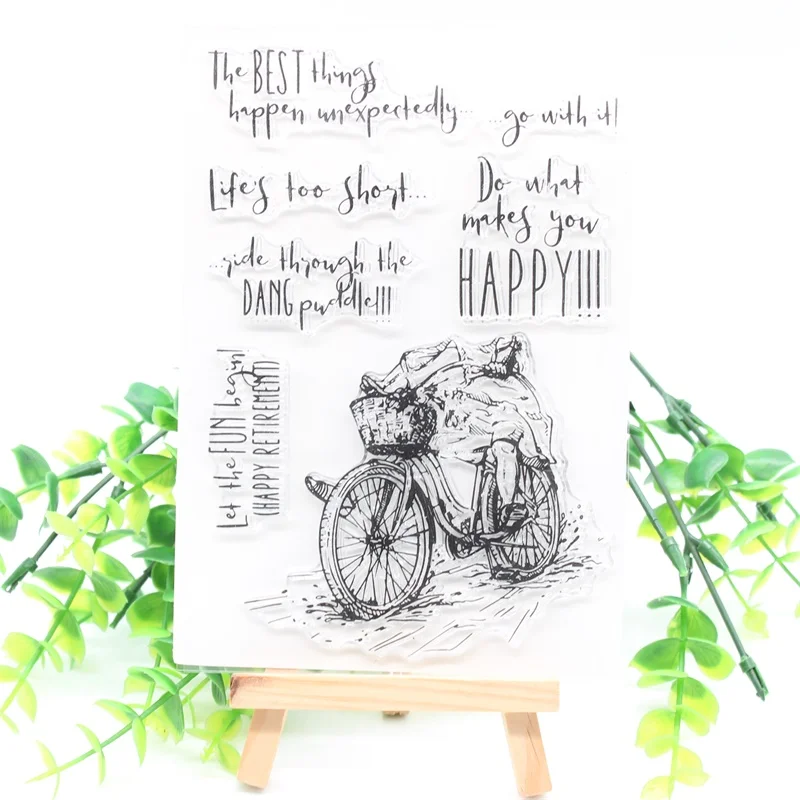 The BEST things
happen unexpectedly... ...go with it!
Life's too short...
Do what
makes you
HAPPY!!!
...ride through the
DANG puddle!!!
Let the FUN begin!
(HAPPY RETIREMENT)